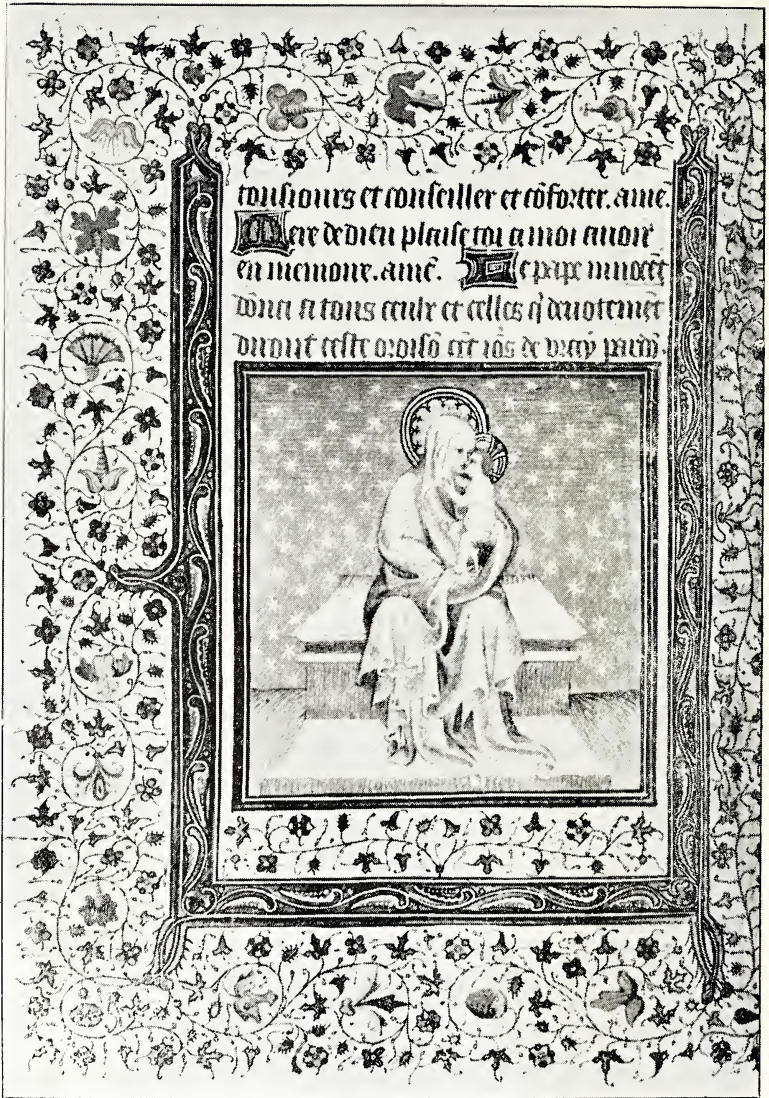 tousiours et conseiller et cōforter. amē.
Mere de dieu plaise toi a moi auoir
en memoire. amē. Le pape innocēt
donna a tous ceulx et celles q̄ deuotemēt
diront ceste oroisō cēt iōs de vray pardō.